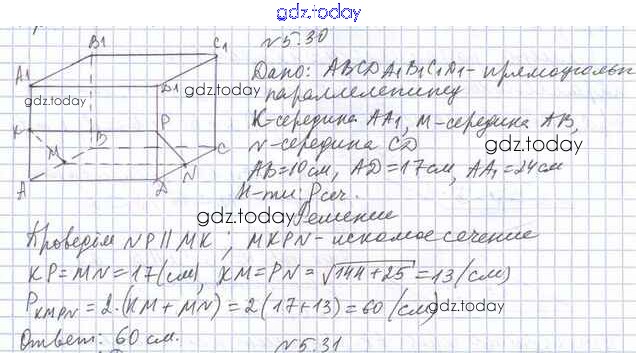 gdz.today
№5.30
B1 C1
A1 D1
Дано: ABCDA1B1C1D1 - прямоугольн
gdz.today
параллелепипед
K P
K-середина AA1, M-середина AB,
gdz.today
M B C
N-середина CD
gdz.today
A D N
AB=10см, AD=17см, AA1=24см
Н-ти: Pсеч.
gdz.today
Решение
Проведём NP || MK, MKPN - искомое сечение
KP=MN=17(см), KM=PN=√144+25=13(см)
PKMPN=2·(KM+MN)=2(17+13)=60(см)
gdz.today
Ответ: 60 см.
№5.31
gdz.today